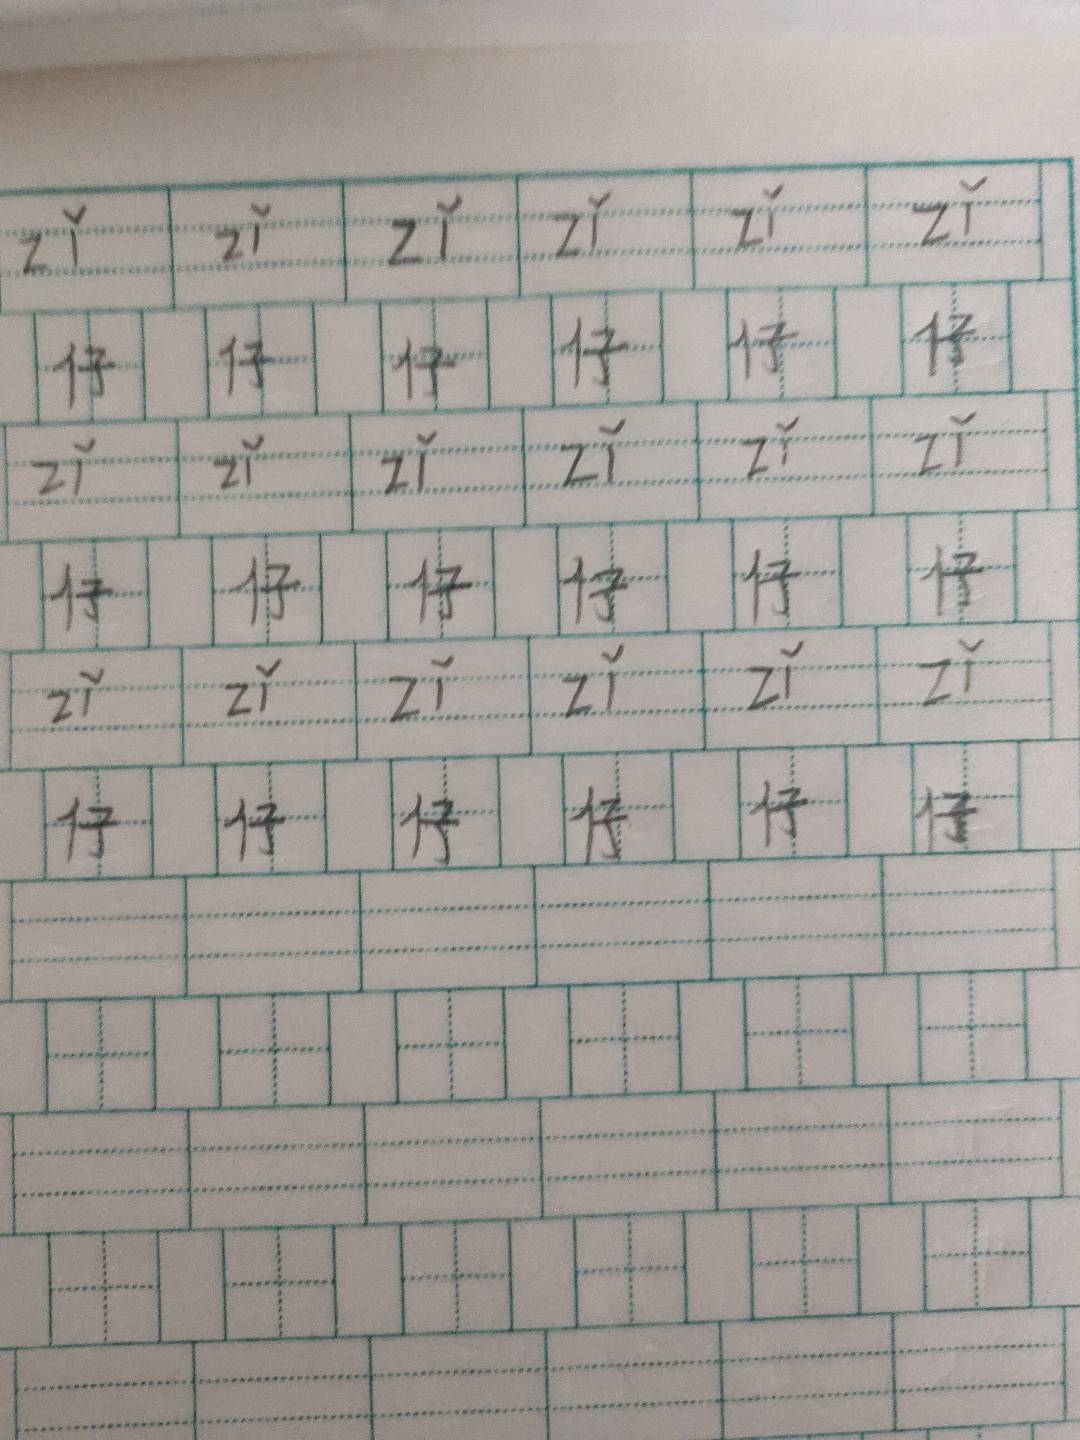 zǐ zǐ zǐ zǐ zǐ zǐ
仔 仔 仔 仔 仔 仔
zǐ zǐ zǐ zǐ zǐ zǐ
仔 仔 仔 仔 仔 仔
zǐ zǐ zǐ zǐ zǐ zǐ
仔 仔 仔 仔 仔 仔